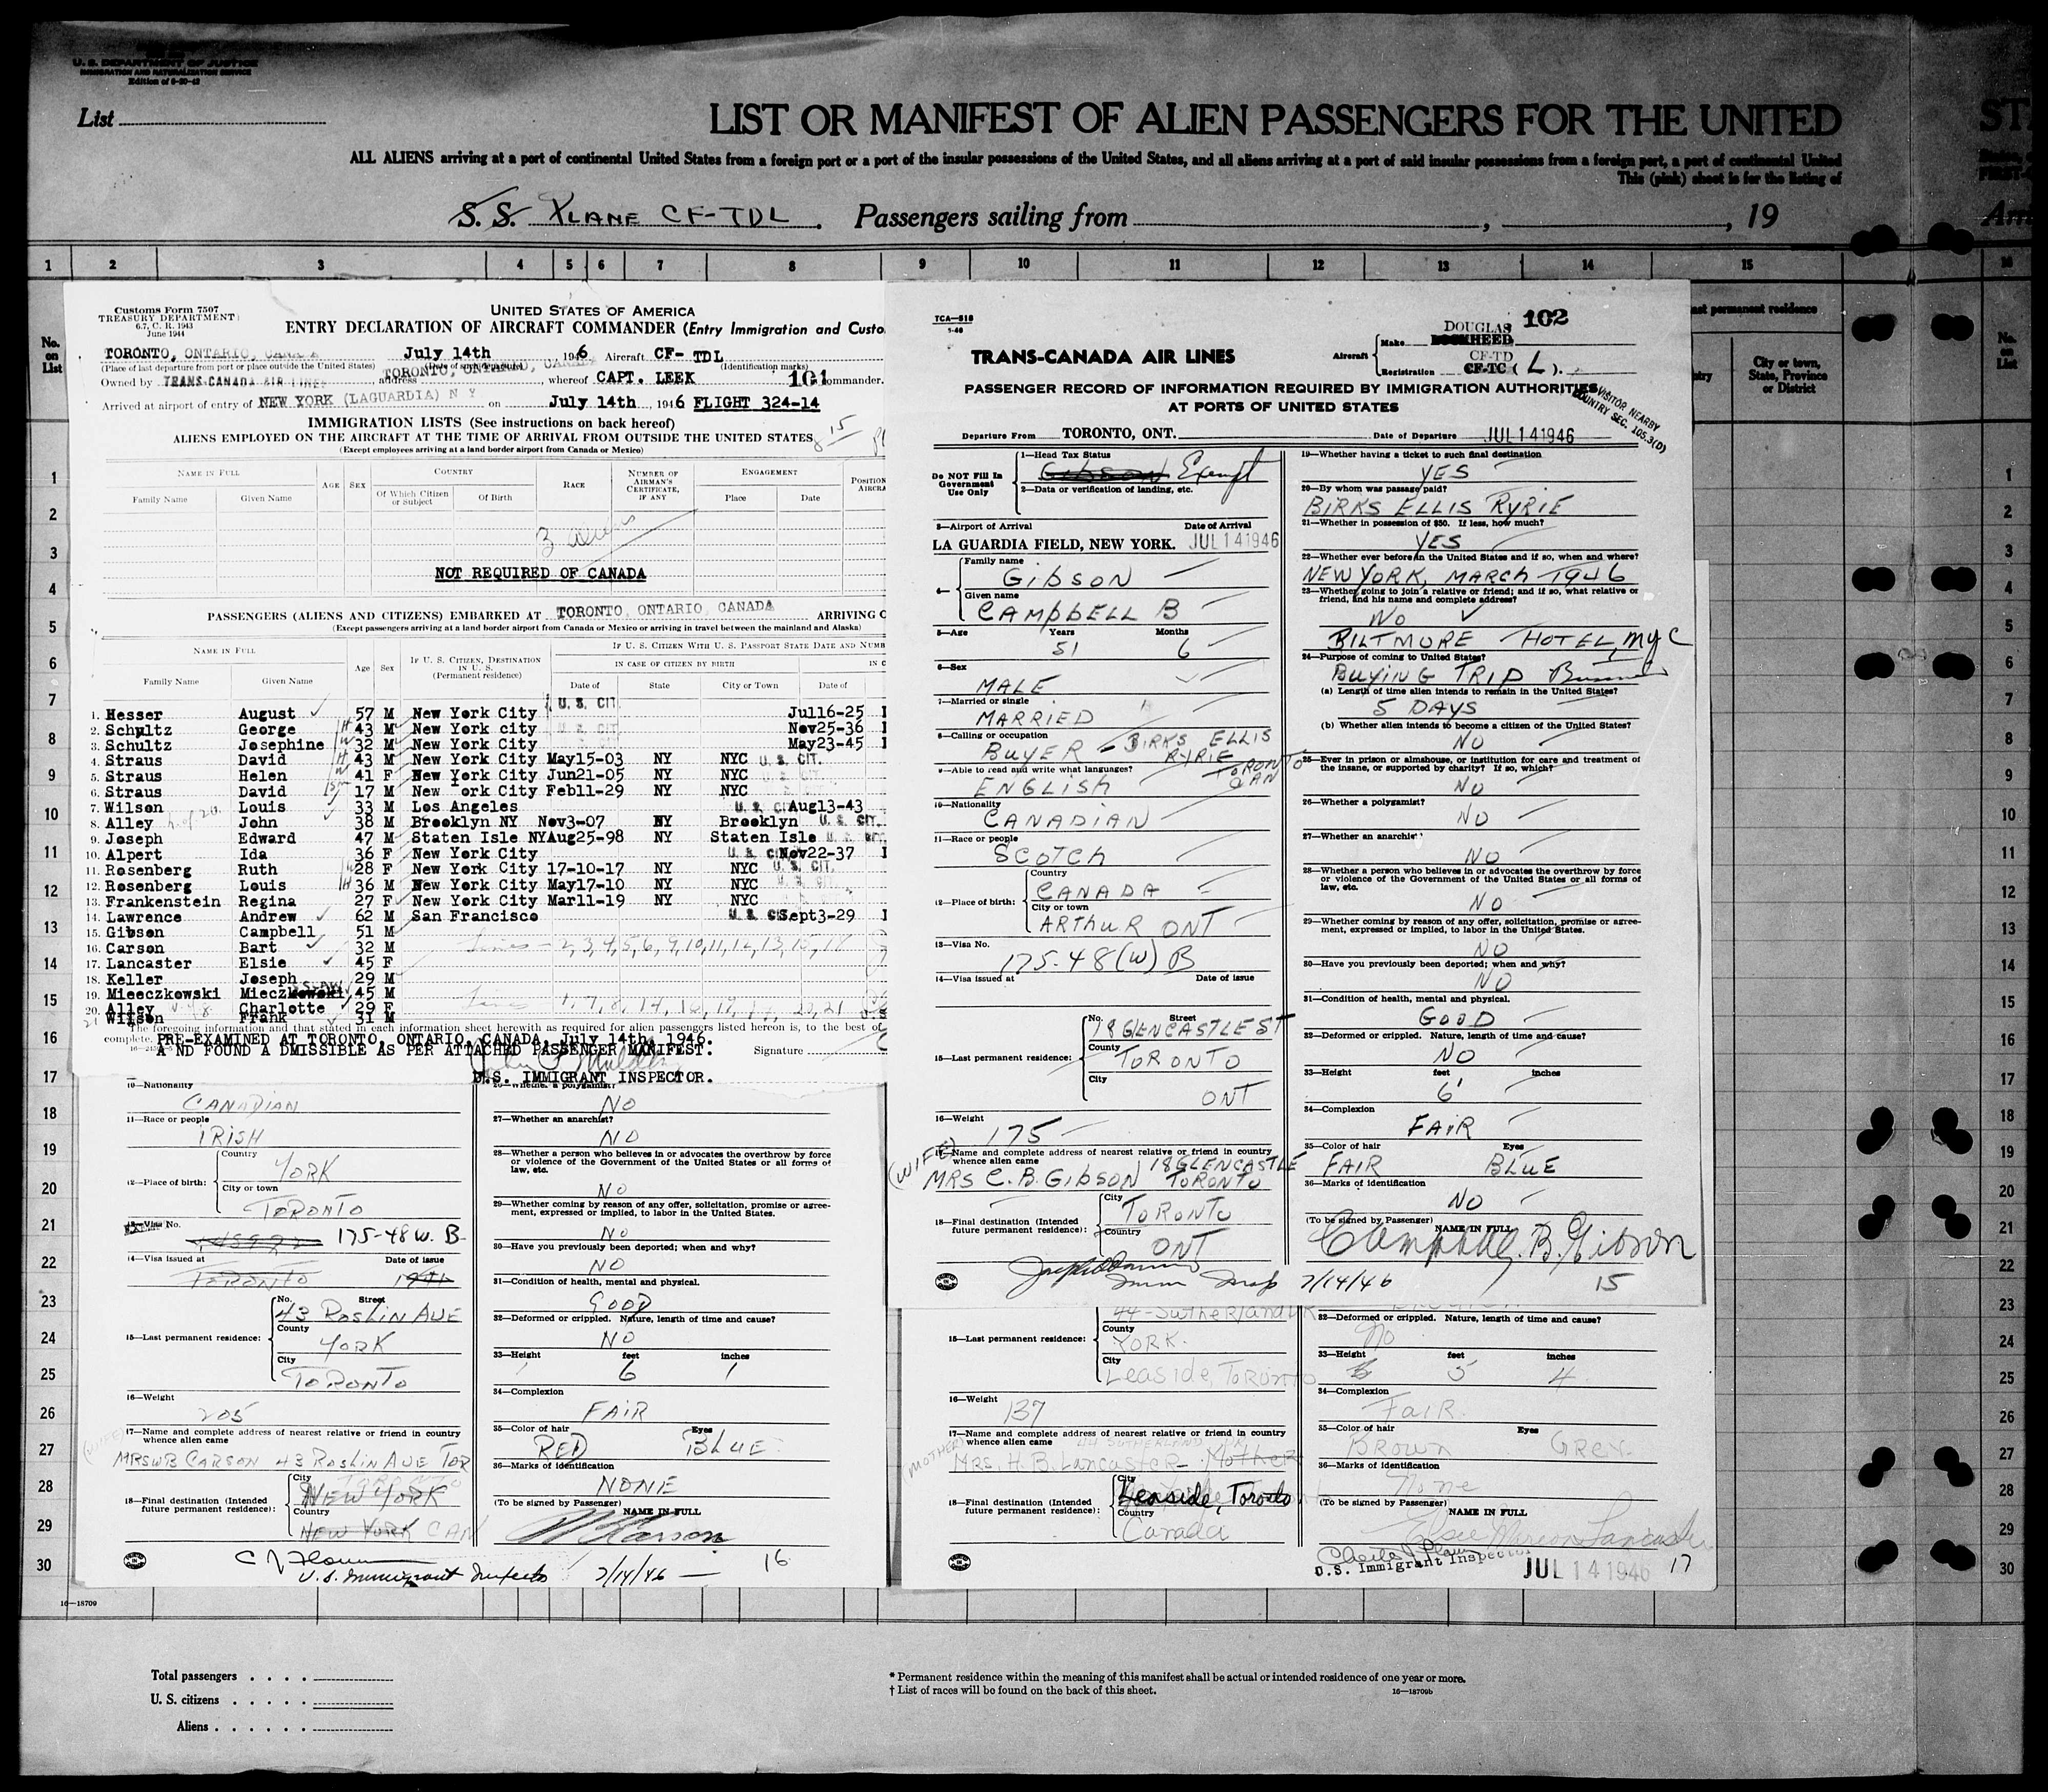 U. S. DEPARTMENT OF JUSTICE
IMMIGRATION AND NATURALIZATION SERVICE
List
LIST OR MANIFEST OF ALIEN PASSENGERS FOR THE UNITED
ALL ALIENS arriving at a port of continental United States from a foreign port or a port of the insular possessions of the United States, and all aliens arriving at a port of said insular possessions from a foreign port, a port of continental United
This (pink) sheet is for the listing of
S. S. PLANE CF-TDL. Passengers sailing from , , 19
1 2 3 4 5 6 7 8 9 10 11 12 13 14 15 16
No. on List
City or town, State, Province or District
No. on List
Customs Form 7507
TREASURY DEPARTMENT
6.7, C. R. 1943
June 1944
UNITED STATES OF AMERICA
ENTRY DECLARATION OF AIRCRAFT COMMANDER (Entry Immigration and Custo
TORONTO, ONTARIO, CANADA July 14th 1946 Aircraft CF-TDL
(Place of last departure from port or place outside the United States) (Identification marks)
Owned by TRANS-CANADA AIR LINES address TORONTO, ONTARIO, CANADA whereof CAPT. LEEK 101 ommander.
Arrived at airport of entry of NEW YORK (LAGUARDIA) N Y on July 14th, 1946 FLIGHT 324-14
IMMIGRATION LISTS (See instructions on back hereof)
ALIENS EMPLOYED ON THE AIRCRAFT AT THE TIME OF ARRIVAL FROM OUTSIDE THE UNITED STATES
(Except employees arriving at a land border airport from Canada or Mexico)
NAME IN FULL AGE SEX COUNTRY RACE NUMBER OF AIRMAN'S CERTIFICATE, IF ANY ENGAGEMENT POSITION AIRCRA
Family Name Given Name Of Which Citizen or Subject Of Birth Place Date
3 aliens
NOT REQUIRED OF CANADA
PASSENGERS (ALIENS AND CITIZENS) EMBARKED AT TORONTO, ONTARIO, CANADA ARRIVING O
(Except passengers arriving at a land border airport from Canada or Mexico or arriving in travel between the mainland and Alaska)
NAME IN FULL Age Sex IF U. S. CITIZEN, DESTINATION IN U. S. (Permanent residence) IF U. S. CITIZEN WITH U. S. PASSPORT STATE DATE AND NUMB
IN CASE OF CITIZEN BY BIRTH IN C
Family Name Given Name Date of State City or Town Date of
1. Hesser August 57 M New York City U. S. CIT. Jul16-25
2. Schultz George 43 M New York city Nov25-36
3. Schultz Josephine 32 M New York City May23-45
4. Straus David 43 M New York City May15-03 NY NYC U. S. CIT.
5. Straus Helen 41 F New York City Jun21-05 NY NYC
6. Straus David 17 M New ork City Feb11-29 NY NYC
7. Wilson Louis 33 M Los Angeles U. S. CIT Aug13-43
8. Alley John 38 M Brooklyn NY Nov3-07 NY Brooklyn U. S. CIT.
9. Joseph Edward 47 M Staten Isle NY Aug25-98 NY Staten Isle U. S. CIT.
10. Alpert Ida 36 F New York City U. S. CIT Nov22-37
11. Rosenberg Ruth 28 F New York City 17-10-17 NY NYC U. S. CIT.
12. Rosenberg Louis 36 M New York City May17-10 NY NYC
13. Frankenstein Regina 27 F New York City Mar11-19 NY NYC
14. Lawrence Andrew 62 M San Francisco U. S. CIT Sept3-29
15. Gibson Campbell 51 M
16. Carson Bart 32 M
17. Lancaster Elsie 45 F
18. Keller Joseph 29 M
19. Mieeczkowski 45 M
20. Alley Charlotte 29 F
21 Wilson Frank 31 M
The foregoing information and that stated in each information sheet herewith as required for alien passengers listed hereon is, to the best of
complete. PRE-EXAMINED AT TORONTO, ONTARIO, CANADA, July 14th, 1946.
A ND FOUND A DMISSIBLE AS PER ATTACHED PASSENGER MANIFEST. Signature
U.S. IMMIGRANT INSPECTOR.
10—Nationality
CANADIAN
11—Race or people
IRISH
12—Place of birth: Country
YORK
City or town
TORONTO
13—Visa No.
175-48 W. B
14—Visa issued at Date of issue
TORONTO 1941
15—Last permanent residence: No. Street
43 ROSLIN AVE
County
YORK
City
TORONTO
16—Weight
205
17—Name and complete address of nearest relative or friend in country whence alien came
(WIFE)
MRS WB CARSON 43 ROSLIN AVE TOR
18—Final destination (Intended future permanent residence): City
TORONTO
NEW YORK
Country
NEW YORK CAN
U.S. Immigrant Inspector 7/14/46
26—Whether a polygamist?
NO
27—Whether an anarchist?
NO
28—Whether a person who believes in or advocates the overthrow by force or violence of the Government of the United States or all forms of law, etc.
NO
29—Whether coming by reason of any offer, solicitation, promise or agreement, expressed or implied, to labor in the United States.
NO
30—Have you previously been deported; when and why?
NO
31—Condition of health, mental and physical.
GOOD
32—Deformed or crippled. Nature, length of time and cause?
NO
33—Height feet inches
6 1
34—Complexion
FAIR
35—Color of hair Eyes
RED BLUE
36—Marks of identification
NONE
(To be signed by Passenger) NAME IN FULL
16
TCA—518
TRANS-CANADA AIR LINES
Aircraft Make DOUGLAS 102
Registration CF-TD
CF-TC (L)
PASSENGER RECORD OF INFORMATION REQUIRED BY IMMIGRATION AUTHORITIES
AT PORTS OF UNITED STATES
VISITOR NEARBY
COUNTRY SEC. 105.3(D)
Departure From TORONTO, ONT. Date of Departure JUL 14 1946
Do NOT Fill In Government Use Only
1—Head Tax Status
GIBSON Exempt
2—Data or verification of landing, etc.
3—Airport of Arrival Date of Arrival
LA GUARDIA FIELD, NEW YORK. JUL 14 1946
4— Family name
GIBSON
Given name
CAMPBELL B
5—Age Years Months
51 6
6—Sex
MALE
7—Married or single
MARRIED
8—Calling or occupation
BUYER - BIRKS ELLIS RYRIE
TORONTO CAN
9—Able to read and write what languages?
ENGLISH
10—Nationality
CANADIAN
11—Race or people
SCOTCH
12—Place of birth: Country
CANADA
City or town
ARTHUR ONT
13—Visa No.
175-48(W) B
14—Visa issued at Date of issue
15—Last permanent residence: No. Street
18 GLENCASTLE ST
County
TORONTO
City
ONT
16—Weight
175
(WIFE)
17—Name and complete address of nearest relative or friend in country whence alien came
MRS C. B. GIBSON 18 GLENCASTLE TORONTO
18—Final destination (Intended future permanent residence): City
TORONTO
Country
ONT
7/14/46
19—Whether having a ticket to such final destination
YES
20—By whom was passage paid?
BIRKS ELLIS RYRIE
21—Whether in possession of $50. If less, how much?
YES
22—Whether ever before in the United States and if so, when and where?
NEW YORK, MARCH 1946
23—Whether going to join a relative or friend; and if so, what relative or friend, and his name and complete address?
NO
BILTMORE HOTEL, NYC
24—Purpose of coming to United States?
BUYING TRIP Business
(a) Length of time alien intends to remain in the United States?
5 DAYS
(b) Whether alien intends to become a citizen of the United States?
NO
25—Ever in prison or almshouse, or institution for care and treatment of the insane, or supported by charity? If so, which?
NO
26—Whether a polygamist?
NO
27—Whether an anarchist
NO
28—Whether a person who believes in or advocates the overthrow by force or violence of the Government of the United States or all forms of law, etc.
NO
29—Whether coming by reason of any offer, solicitation, promise or agreement, expressed or implied, to labor in the United States.
NO
30—Have you previously been deported; when and why?
NO
31—Condition of health, mental and physical.
GOOD
32—Deformed or crippled. Nature, length of time and cause?
NO
33—Height feet inches
6'
34—Complexion
FAIR
35—Color of hair Eyes
FAIR BLUE
36—Marks of identification
NO
(To be signed by Passenger) NAME IN FULL
Campbell. B. Gibson
15
44-Sutherland
15—Last permanent residence:
County
YORK.
City
Leaside, Toronto
16—Weight
137
17—Name and complete address of nearest relative or friend in country whence alien came
(MOTHER) 44 SUTHERLAND DR
Mrs. H. B. Lancaster - Mother
18—Final destination (Intended future permanent residence): City
Leaside, Toronto
Country
Canada
32—Deformed or crippled. Nature, length of time and cause?
No
33—Height feet inches
5 4
34—Complexion
Fair.
35—Color of hair Eyes
Brown Grey.
36—Marks of identification
None
(To be signed by Passenger) NAME IN FULL
Elsie Marion Lancaster
U.S. Immigrant Inspector JUL 14 1946 17
16—18709
Total passengers
U. S. citizens
Aliens
* Permanent residence within the meaning of this manifest shall be actual or intended residence of one year or more.
† List of races will be found on the back of this sheet. 16—18709b